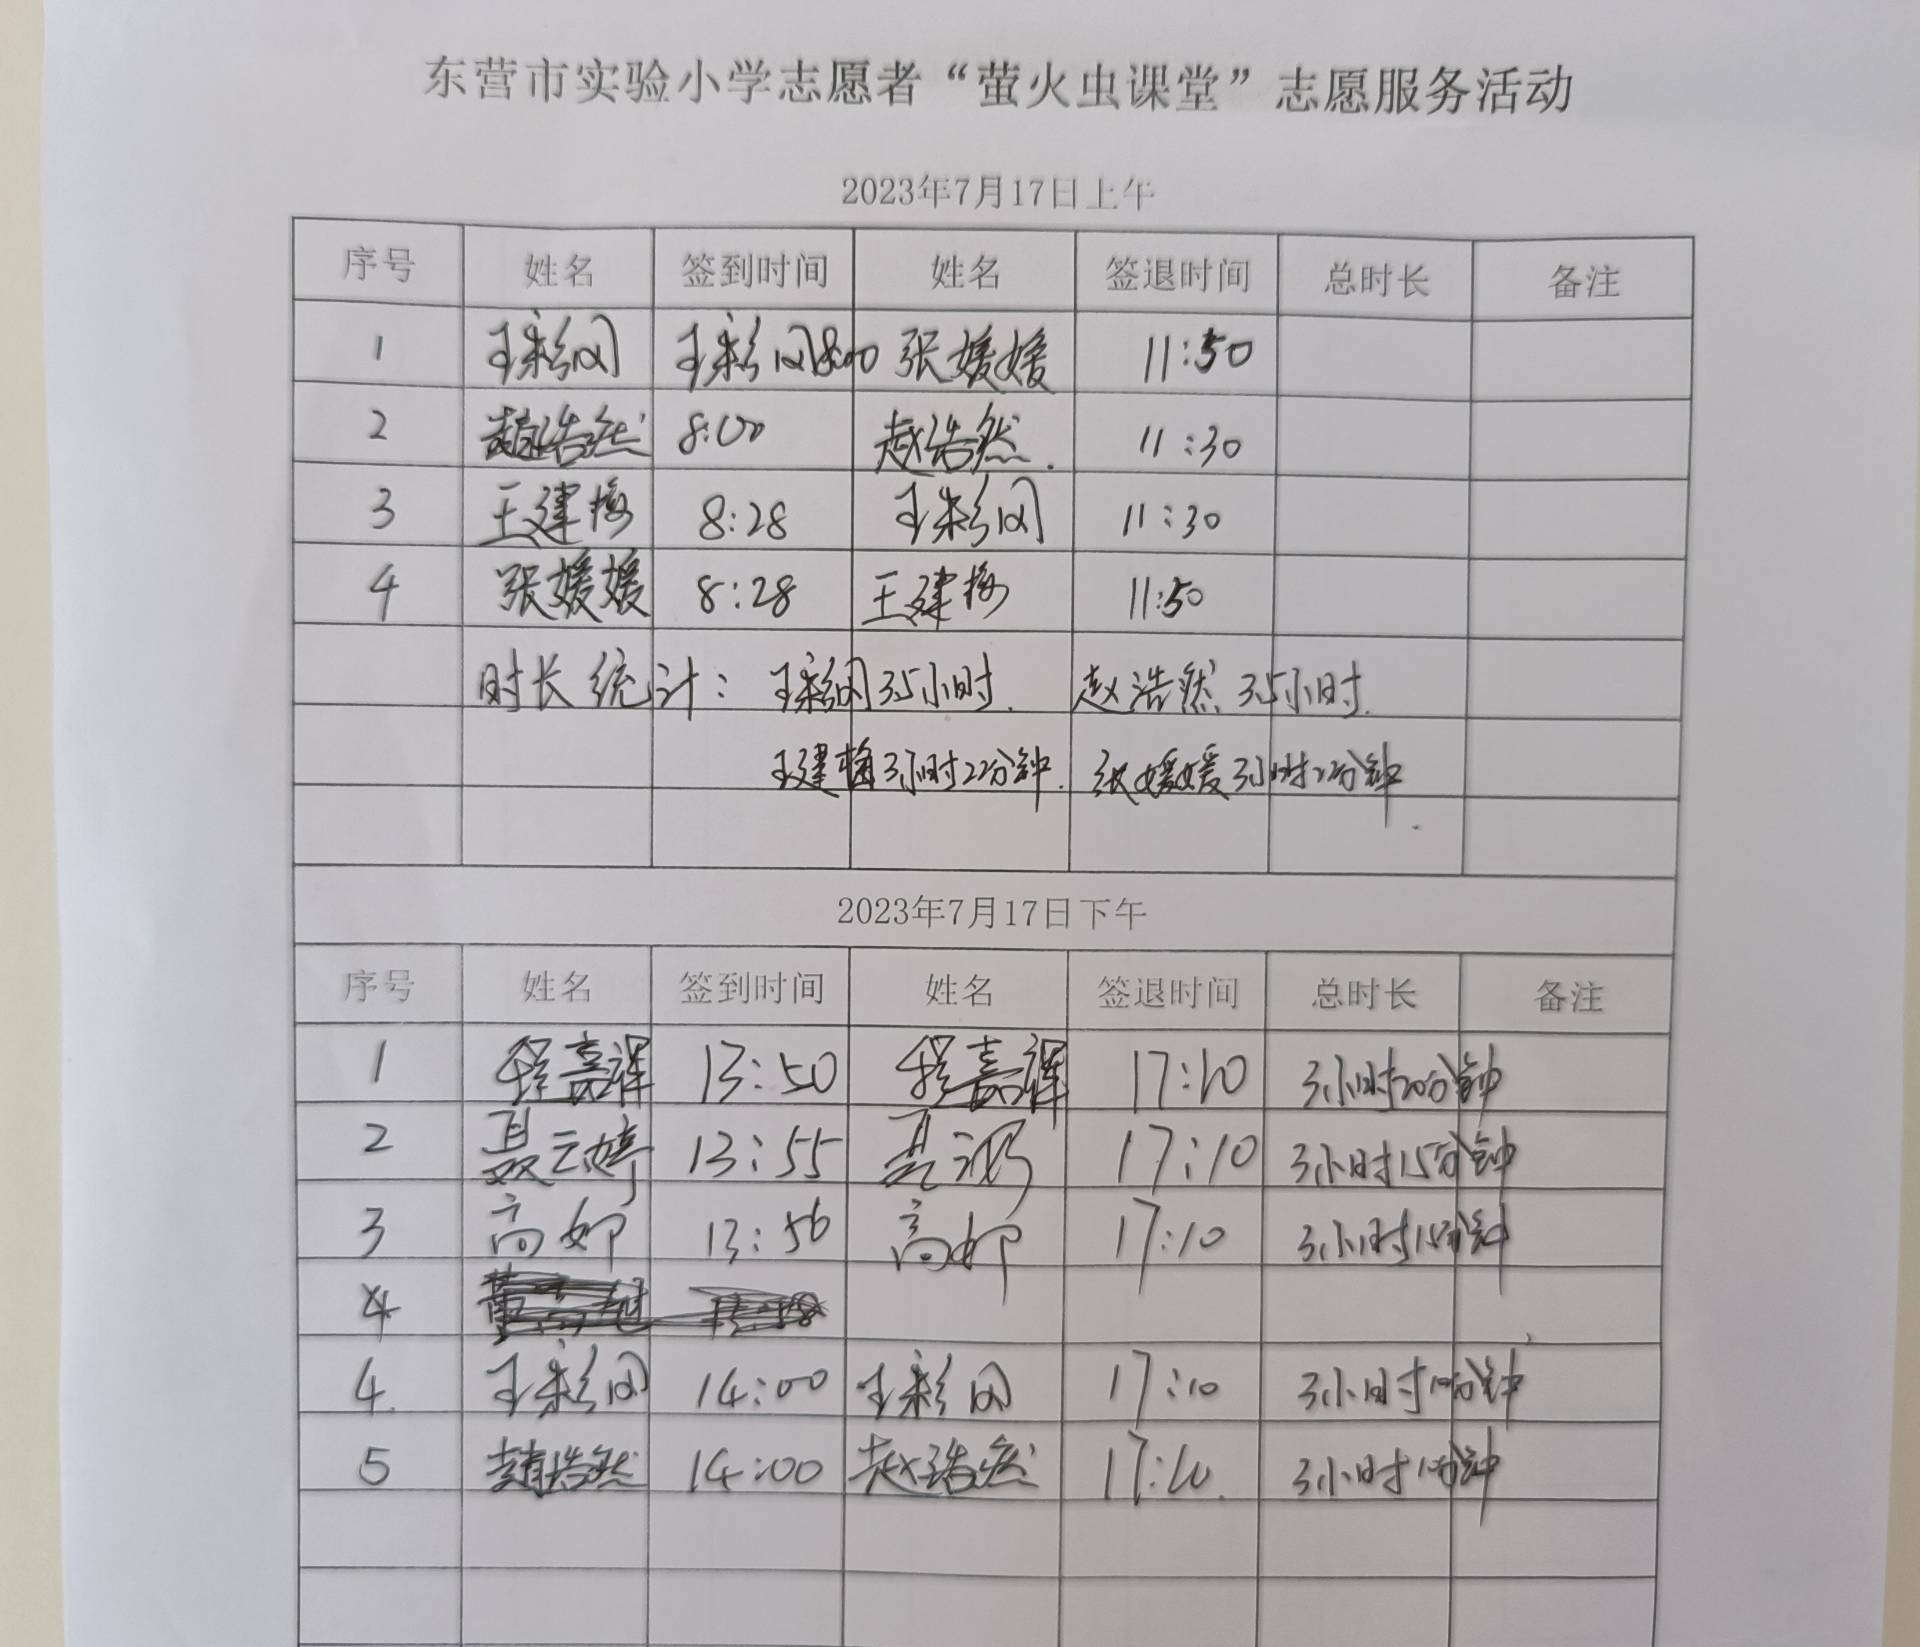 东营市实验小学志愿者“萤火虫课堂”志愿服务活动
2023年7月17日上午
序号 姓名 签到时间 姓名 签退时间 总时长 备注
1 王彩闪 王彩闪8:00 张媛媛 11:50
2 赵浩然 8:00 赵浩然. 11:30
3 王建梅 8:28 王彩闪 11:30
4 张媛媛 8:28 王建梅 11:50
时长统计: 王彩闪3.5小时. 赵浩然3.5小时.
王建梅3小时22分钟. 张媛媛3小时22分钟.
2023年7月17日下午
序号 姓名 签到时间 姓名 签退时间 总时长 备注
1 程嘉祥 13:50 程嘉祥 17:10 3小时20分钟
2 聂云婷 13:55 17:10 3小时15分钟
3 高 13:56 高 17:10 3小时15分钟
4
4. 王彩闪 14:00 王彩闪 17:10 3小时10分钟
5 赵浩然 14:00 赵浩然 17:10. 3小时10分钟